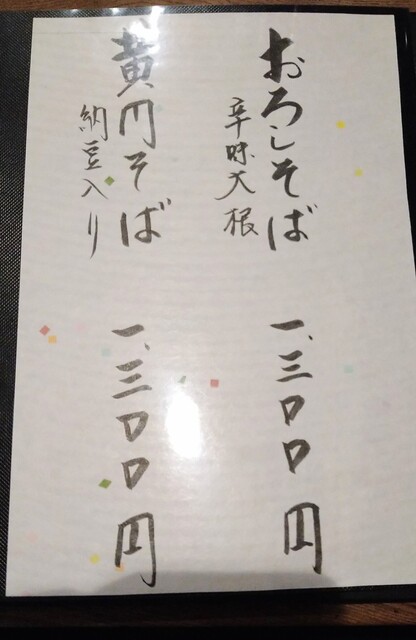 おろしそば
辛味大根
一、三〇〇円
黄円そば
納豆入り
一、三〇〇円